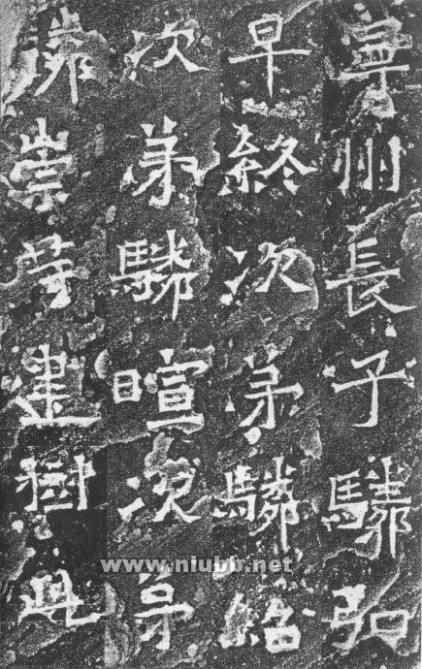 寧州長子驎弘
早終次弟驎紹
次弟驎暄次弟
驎崇等建樹此
www.niubb.net